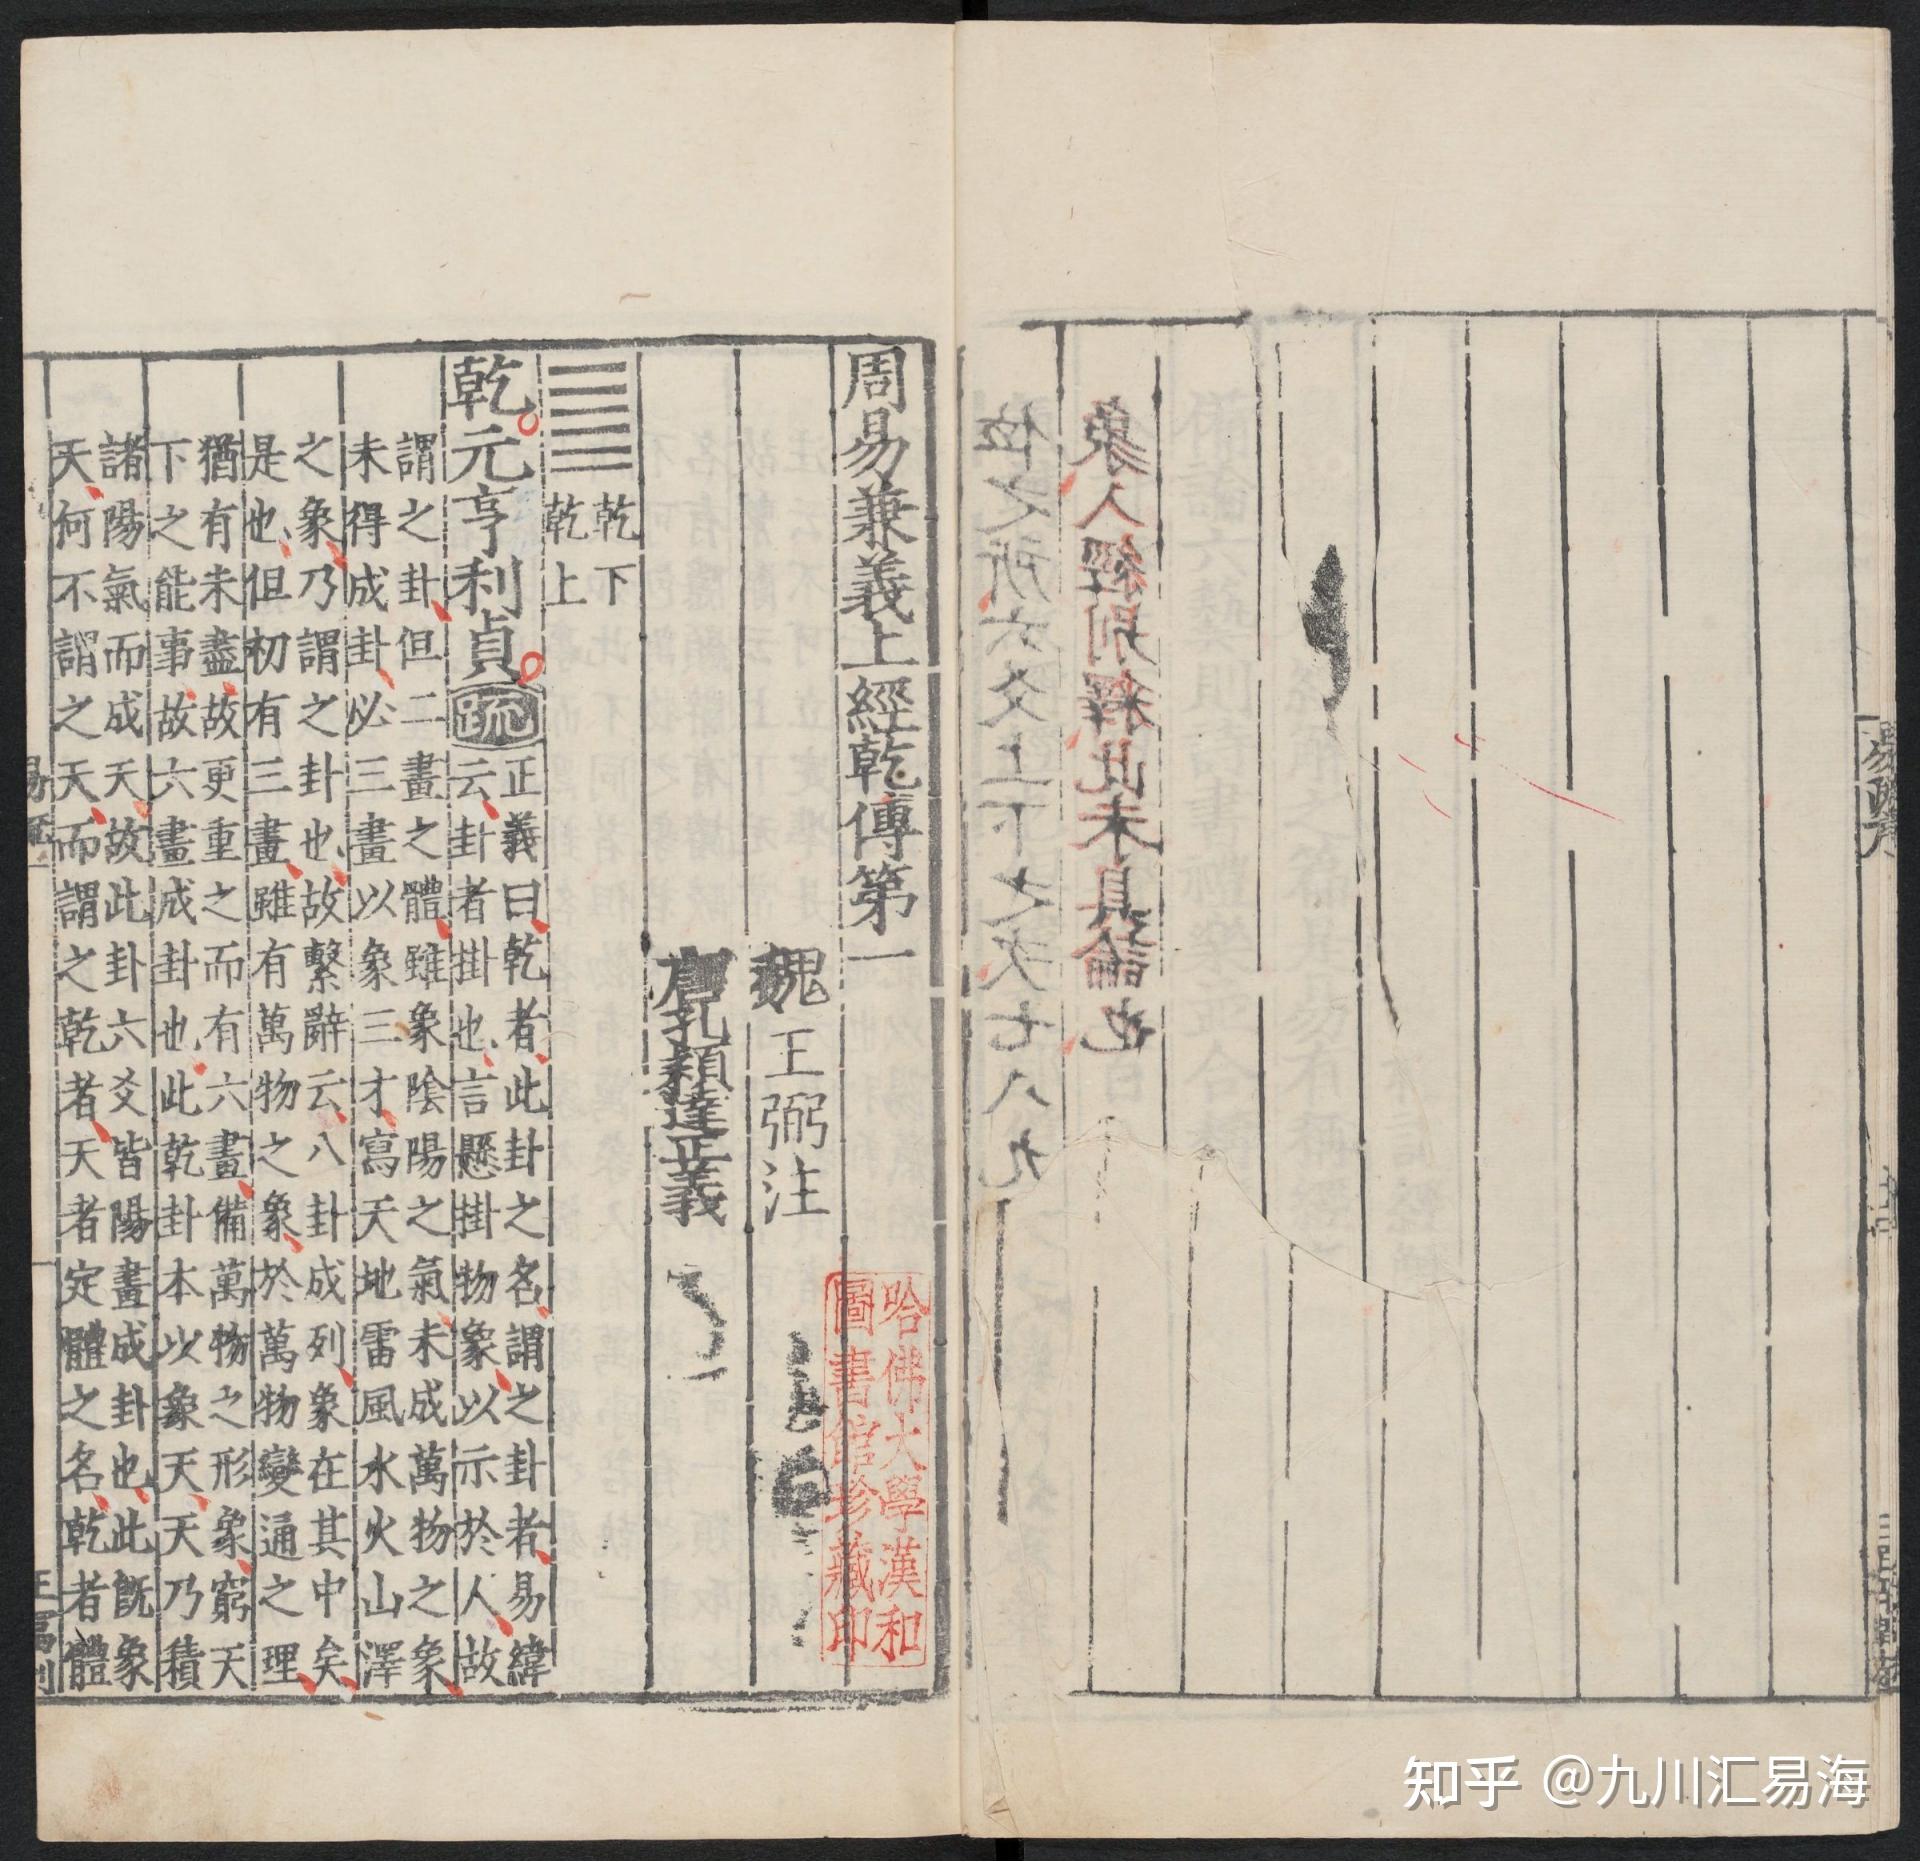 位之所六爻上下之次七八九
象入經別釋此未具論也
周易兼義上經乾傳第一
魏王弼注
唐孔穎達正義
乾下
乾上
乾元亨利貞疏
正義曰乾者此卦之名謂之卦者易緯
云卦者掛也言懸掛物象以示於人故
謂之卦但二畫之體雖象陰陽之氣未成萬物之象
未得成卦必三畫以象三才寫天地雷風水火山澤
之象乃謂之卦也故繫辭云八卦成列象在其中矣
是也但初有三畫雖有萬物之象於萬物變通之理
猶有未盡故更重之而有六畫備萬物之形象窮天
下之能事故六畫成卦也此乾卦本以象天天乃積
諸陽氣而成天故此卦六爻皆陽畫成卦也此既象
天何不謂之天而謂之乾者天者定體之名乾者體
哈佛大學漢和
圖書館珍藏印
知乎 @九川汇易海